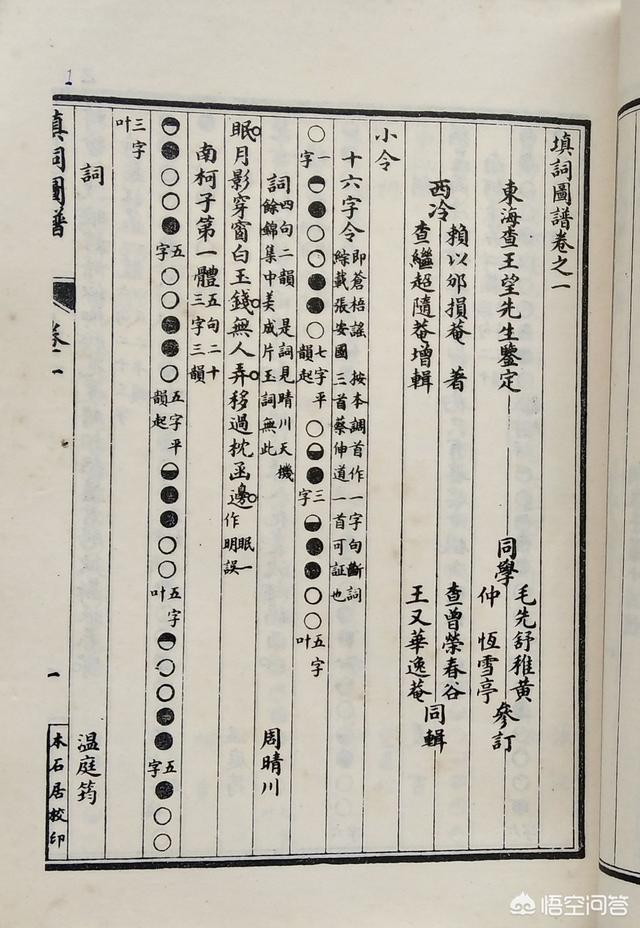 填詞圖譜卷之一
東海查王望先生鑒定
同學
毛先舒稚黃
仲恆雪亭
參訂
西泠
賴以邠損菴著
查繼超隨菴增輯
查曾榮春谷
王又華逸菴
同輯
小令
十六字令
即蒼梧謠 按本調首作一字句斷詞
綜載張安國三首蔡伸道一首可証也
○一字◓●○○●●○七字平韻起○◓●三字◓●●○○五字叶
詞
四句二韻 是詞見晴川天機
餘錦集中美成片玉詞無此
周晴川
眠月影穿窗白玉錢無人弄移過枕函邊
眠一作明誤
南柯子第一體
五句二十三字三韻
◓●○○●五字○○●●○五字平韻起◓●●○○五字叶◓○○○●●○○五字
三字叶
詞
温庭筠
填詞圖譜
卷一
一
木石居校印
1
悟空问答